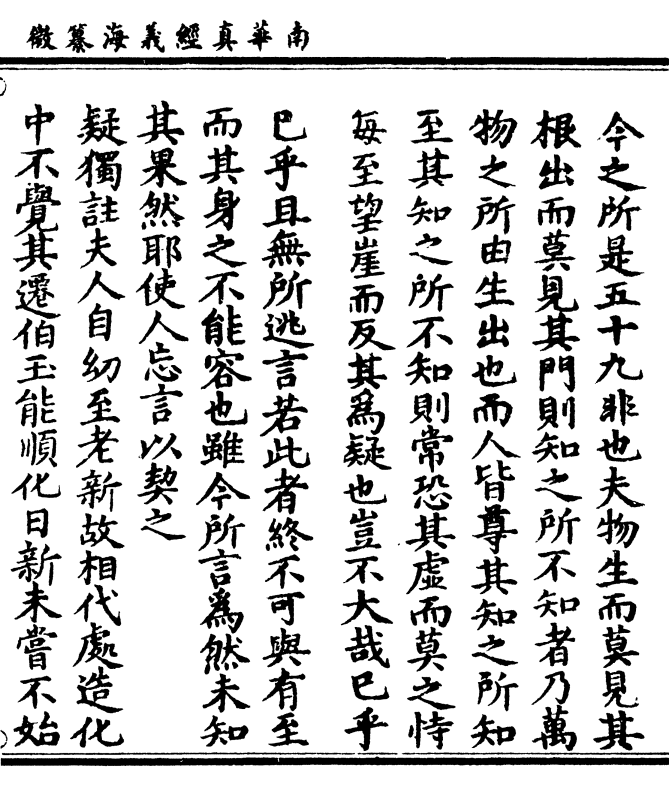 南華真經義海纂微
今之所是五十九非也夫物生而莫見其
根出而莫見其門則知之所不知者乃萬
物之所由生出也而人皆尊其知之所知
至其知之所不知則常恐其虛而莫之恃
每至望崖而反其為疑也豈不大哉巳乎
巳乎且無所逃言若此者終不可與有至
而其身之不能容也雖今所言為然未知
其果然耶使人忘言以契之
疑獨註夫人自幼至老新故相代處造化
中不覺其遷伯玉能順化日新未嘗不始